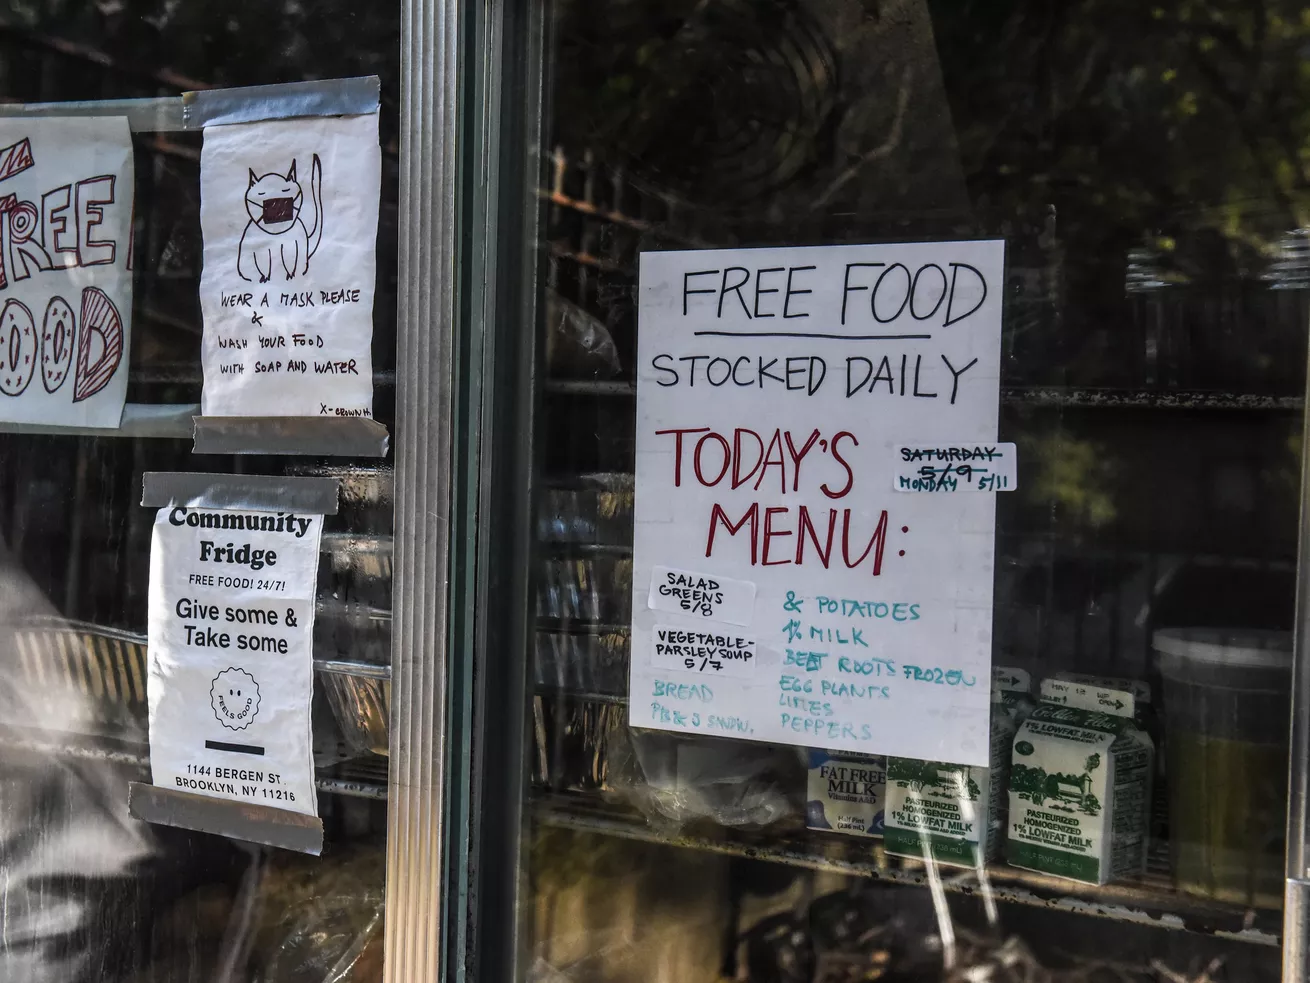 FREE
FOOD
WEAR A MASK PLEASE
&
WASH YOUR FOOD
WITH SOAP AND WATER
X-CROWN H.
Community
Fridge
FREE FOOD! 24/7!
Give some &
Take some
FEELS GOOD
1144 BERGEN ST.
BROOKLYN, NY 11216
FREE FOOD
STOCKED DAILY
TODAY'S
MENU:
SATURDAY
5/9
MONDAY 5/11
SALAD
GREENS
5/8
VEGETABLE-
PARSLEY SOUP
5/7
BREAD
PB & J SANDW.
& POTATOES
1% MILK
BEET ROOTS FROZEN
EGG PLANTS
LIMES
PEPPERS
FAT FREE
MILK
Vitamins A&D
Half Pint
(236 mL)
1% LOWFAT MILK
PASTEURIZED
HOMOGENIZED
1% LOWFAT MILK
HALF PINT (236 mL)
MAY 12
1% LOWFAT MILK
PASTEURIZED
HOMOGENIZED
1% LOWFAT MILK